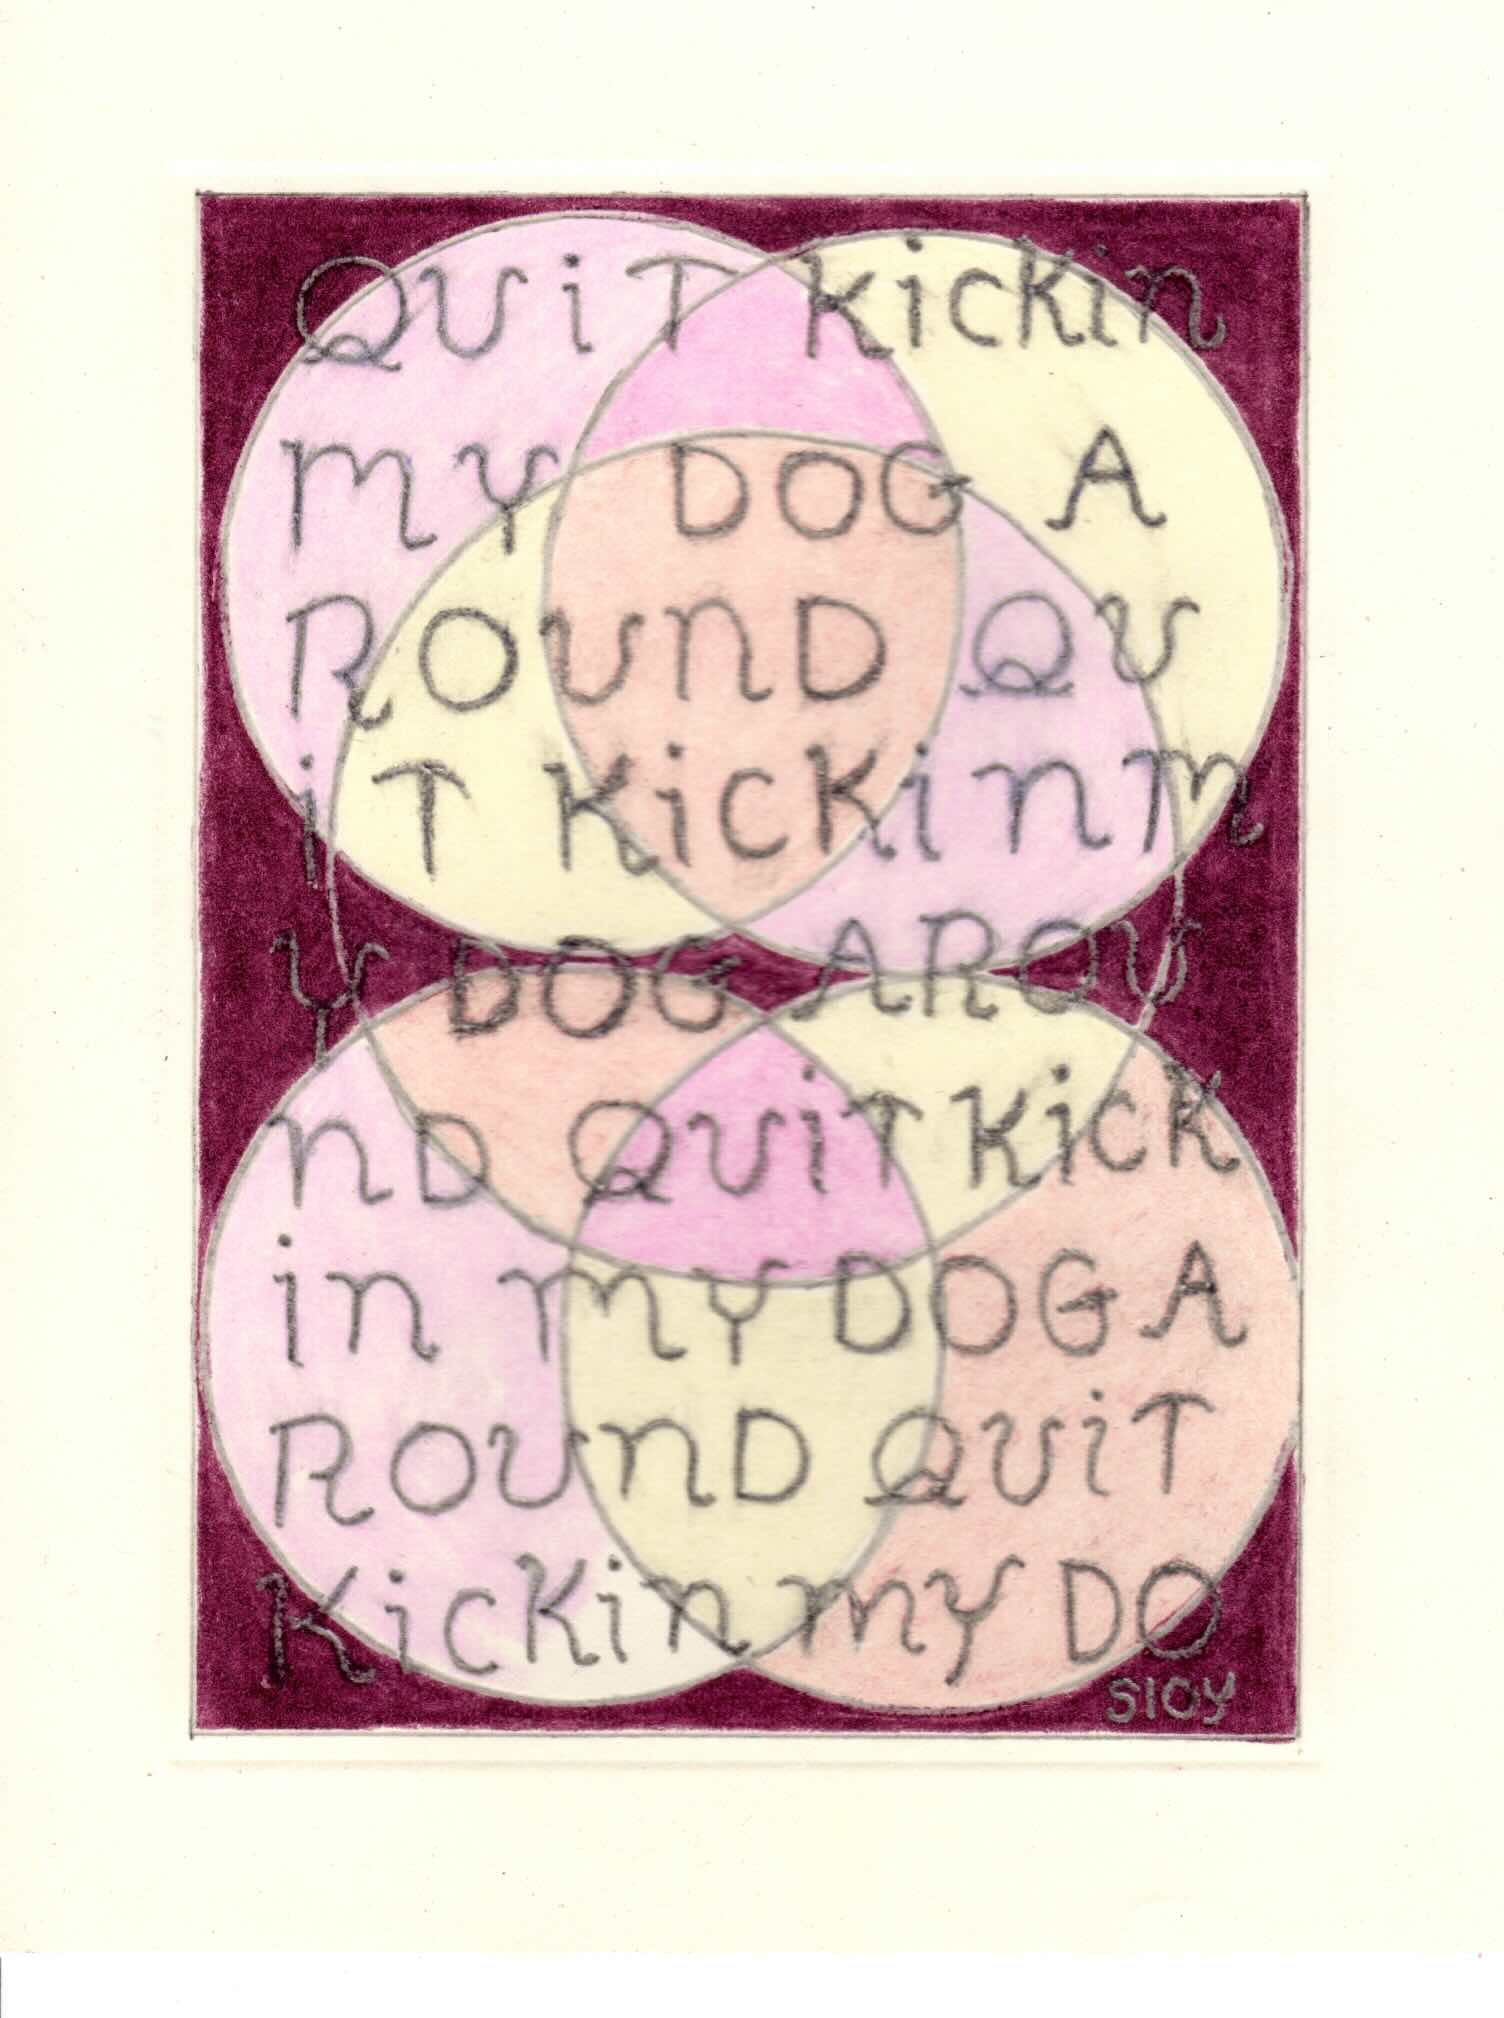 QUiT KicKin
MY DOG A
ROUND QU
iT KicKin M
Y DOG AROU
ND QUiT KicK
in MY DOG A
ROUND QUiT
KicKin MY DO
SLOY